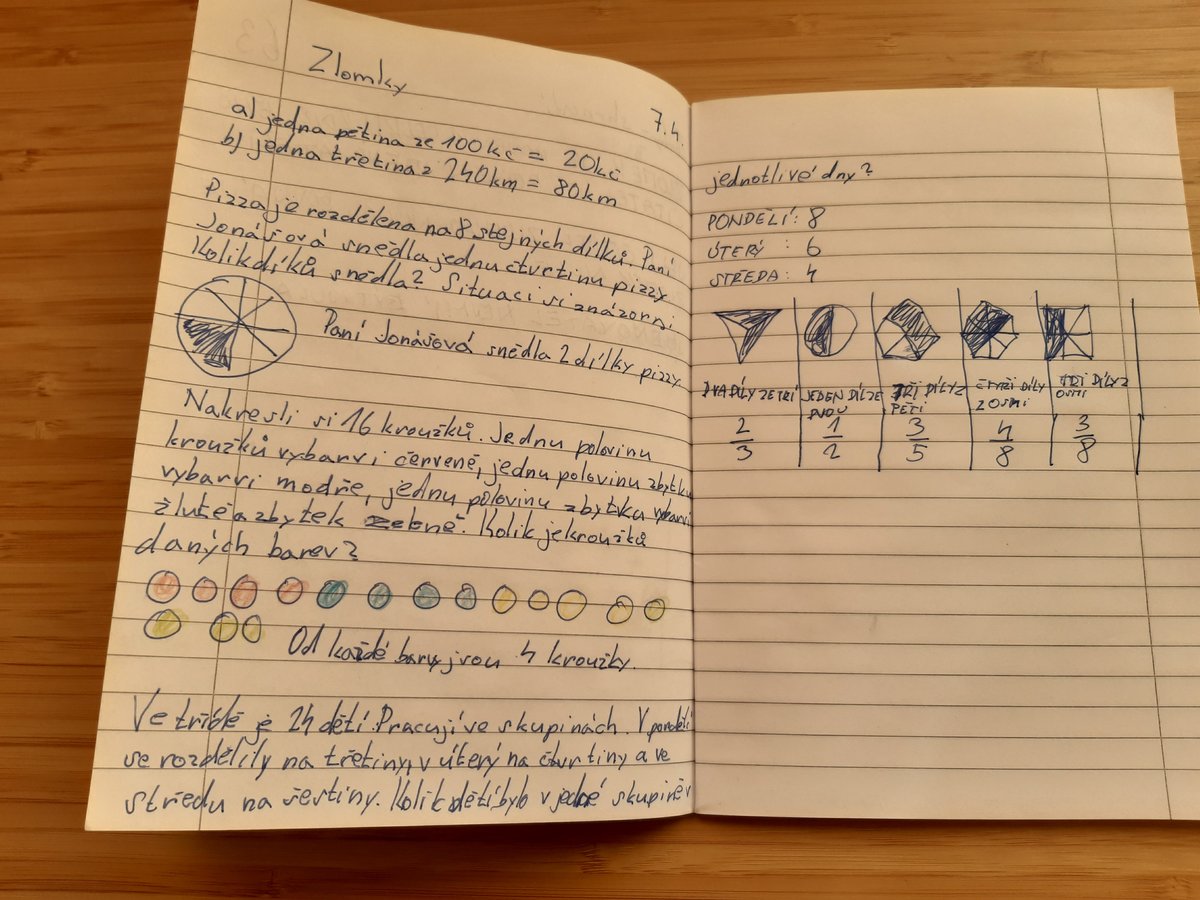 Zlomky
7.4.
a) jedna pětina ze 100 kč = 20 kč
b) jedna třetina z 240 km = 80 km
Pizza je rozdělena na 8 stejných dílků. Paní
Jonášová snědla jednu čtvrtinu pizzy.
Kolik díků snědla? Situaci si znázorni
Paní Jonášová snědla 2 dílky pizzy
Nakresli si 16 kroužků. Jednu polovinu
kroužků vybarvi červeně, jednu polovinu zbytku
vybarvi modře, jednu polovinu zbytku vybarvi
žlutě a zbytek zebně. Kolik je kroužků
daných barev?
Od každé barvy jvou 4 kroužky.
Ve třídě je 24 dětí. Pracují ve skupinách. V pondělí
se rozdělily na třetiny, v úterý na čtvrtiny a ve
středu na šestiny. Kolik dětí bylo v jedné skupině v
jednotlivé dny?
PONDĚLÍ: 8
ÚTERÝ : 6
STŘEDA: 4
DVA DÍLY ZE TŘÍ JEDEN DÍL ZE DVOU TŘI DÍLY Z PĚTI ČTYŘI DÍLY Z OSMI TŘI DÍLY Z OSMI
2/3 1/2 3/5 4/8 3/8